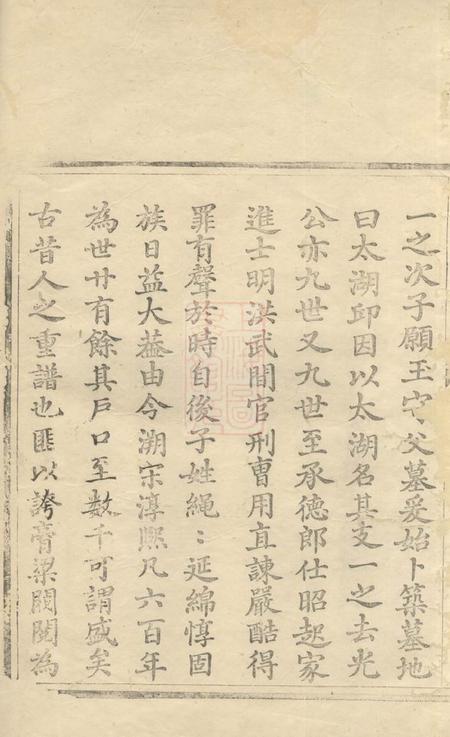 一之次子願玉守父墓爰始卜築墓地
曰太湖邱因以太湖名其支一之去光
公亦九世又九世至承德郎仕昭起家
進士明洪武間官刑曹用直諫嚴酷得
罪有聲於時自後子姓繩〻延綿惇固
族日益大葢由今溯宋淳熈凡六百年
為世廿有餘其戶口至数千可謂盛矣
古昔人之重譜也匪以誇膏梁閥閱為